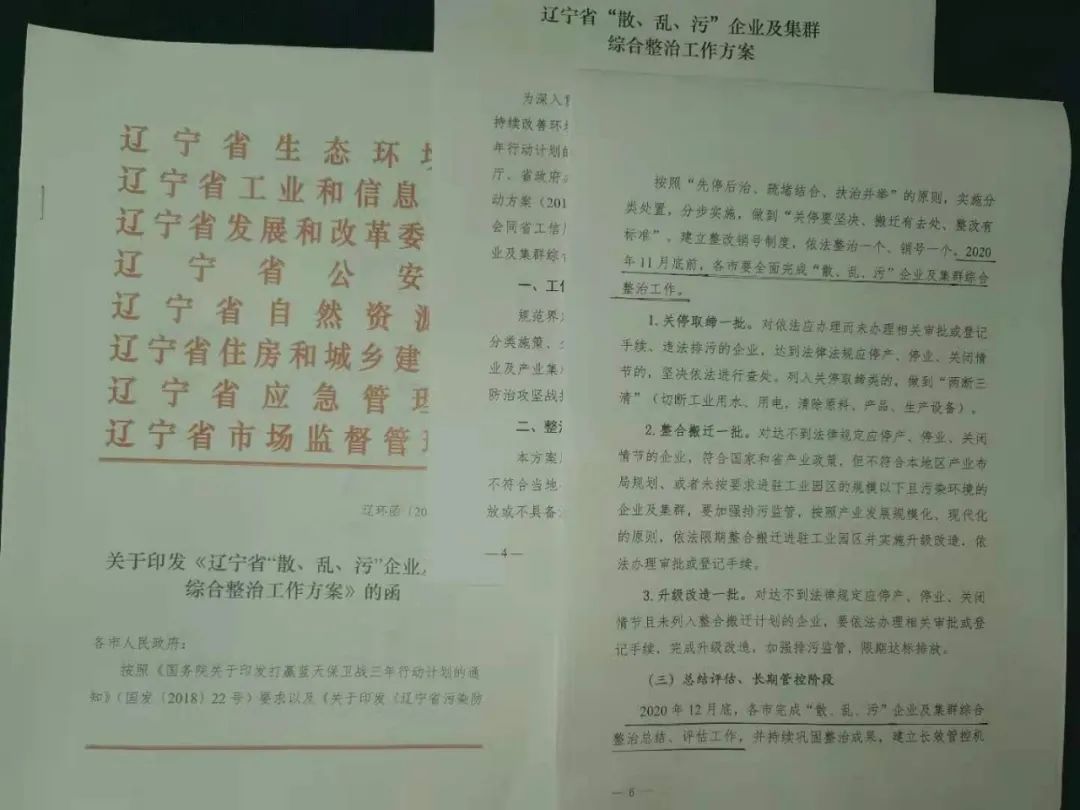 辽宁省生态环境
辽宁省工业和信息
辽宁省发展和改革委
辽宁省公安
辽宁省自然资源
辽宁省住房和城乡建
辽宁省应急管理
辽宁省市场监督管理
辽环函〔20
关于印发《辽宁省“散、乱、污”企业及
综合整治工作方案》的函
各市人民政府：
按照《国务院关于印发打赢蓝天保卫战三年行动计划的通
知》（国发〔2018〕22号）要求以及《关于印发〈辽宁省污染防
辽宁省“散、乱、污”企业及集群
综合整治工作方案
为深入
持续改善环境
年行动计划的
厅、省政府
动方案（201
会同省工信
业及集群综
一、工作
规范界
分类施策、
业及产业集
防治攻坚战
二、整治
本方案
不符合当地
放或不具备
—4—
按照“先停后治、疏堵结合、扶治并举”的原则，实施分
类处置，分步实施，做到“关停要坚决、搬迁有去处、整改有
标准”。建立整改销号制度，依法整治一个、销号一个。2020
年11月底前，各市要全面完成“散、乱、污”企业及集群综合
整治工作。
1.关停取缔一批。对依法应办理而未办理相关审批或登记
手续、违法排污的企业，达到法律法规应停产、停业、关闭情
节的，坚决依法进行查处。列入关停取缔类的，做到“两断三
清”（切断工业用水、用电，清除原料、产品、生产设备）。
2.整合搬迁一批。对达不到法律规定应停产、停业、关闭
情节的企业，符合国家和省产业政策，但不符合本地区产业布
局规划、或者未按要求进驻工业园区的规模以下且污染环境的
企业及集群，要加强排污监管，按照产业发展规模化、现代化
的原则，依法限期整合搬迁进驻工业园区并实施升级改造，依
法办理审批或登记手续。
3.升级改造一批。对达不到法律规定应停产、停业、关闭
情节且未列入整合搬迁计划的企业，要依法办理相关审批或登
记手续，完成升级改造，加强排污监管，限期达标排放。
（三）总结评估、长期管控阶段
2020年12月底，各市完成“散、乱、污”企业及集群综合
整治总结、评估工作，并持续巩固整治成果，建立长效管控机
—6—